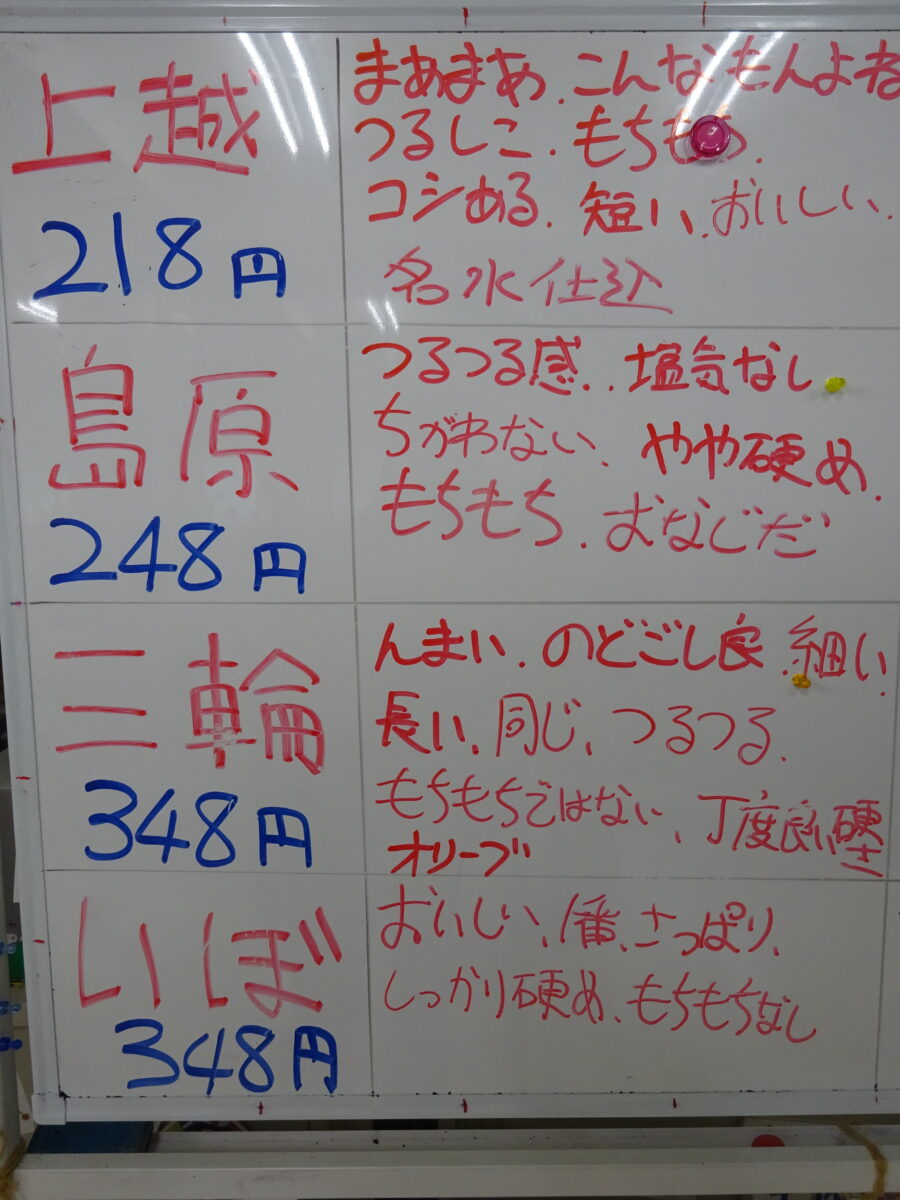 上越
218円
まあまあ、こんなもんよね
つるしこ、もちもち、
コシある、短い、おいしい、
名水仕込
島原
248円
つるつる感、塩気なし
ちがわない、やや硬め、
もちもち、おなじだ
三輪
348円
んまい、のどごし良 細い、
長い、同じ、つるつる、
もちもちではない、丁度良い硬さ
オリーブ
いぼ
348円
おいしい、1番、さっぱり、
しっかり硬め、もちもちなし